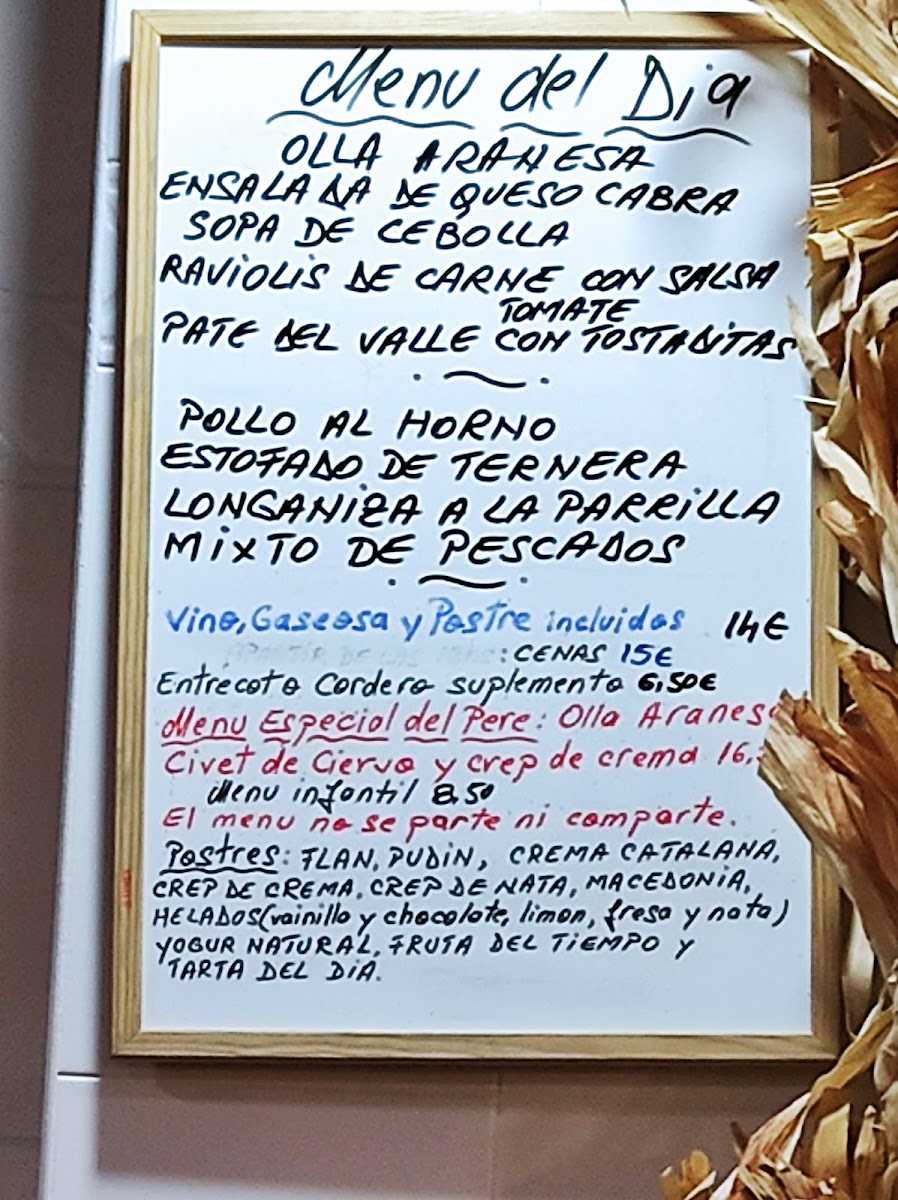 Menu del Dia
OLLA ARANESA
ENSALADA DE QUESO CABRA
SOPA DE CEBOLLA
RAVIOLIS DE CARNE CON SALSA
TOMATE
PATE DEL VALLE CON TOSTADITAS
POLLO AL HORNO
ESTOFADO DE TERNERA
LONGANIZA A LA PARRILLA
MIXTO DE PESCADOS
Vino, Gaseosa y Postre incluidos 14€
: CENAS 15€
Entrecot o Cordero suplemento 6,50€
Menu Especial del Pere: Olla Aranesa
Civet de Ciervo y crep de crema 16,
Menu infantil 8.50
El menu no se parte ni comparte.
Postres: FLAN, PUDIN, CREMA CATALANA,
CREP DE CREMA, CREP DE NATA, MACEDONIA,
HELADOS (vainilla y chocolate, limon, fresa y nata)
YOGUR NATURAL, FRUTA DEL TIEMPO y
TARTA DEL DIA.